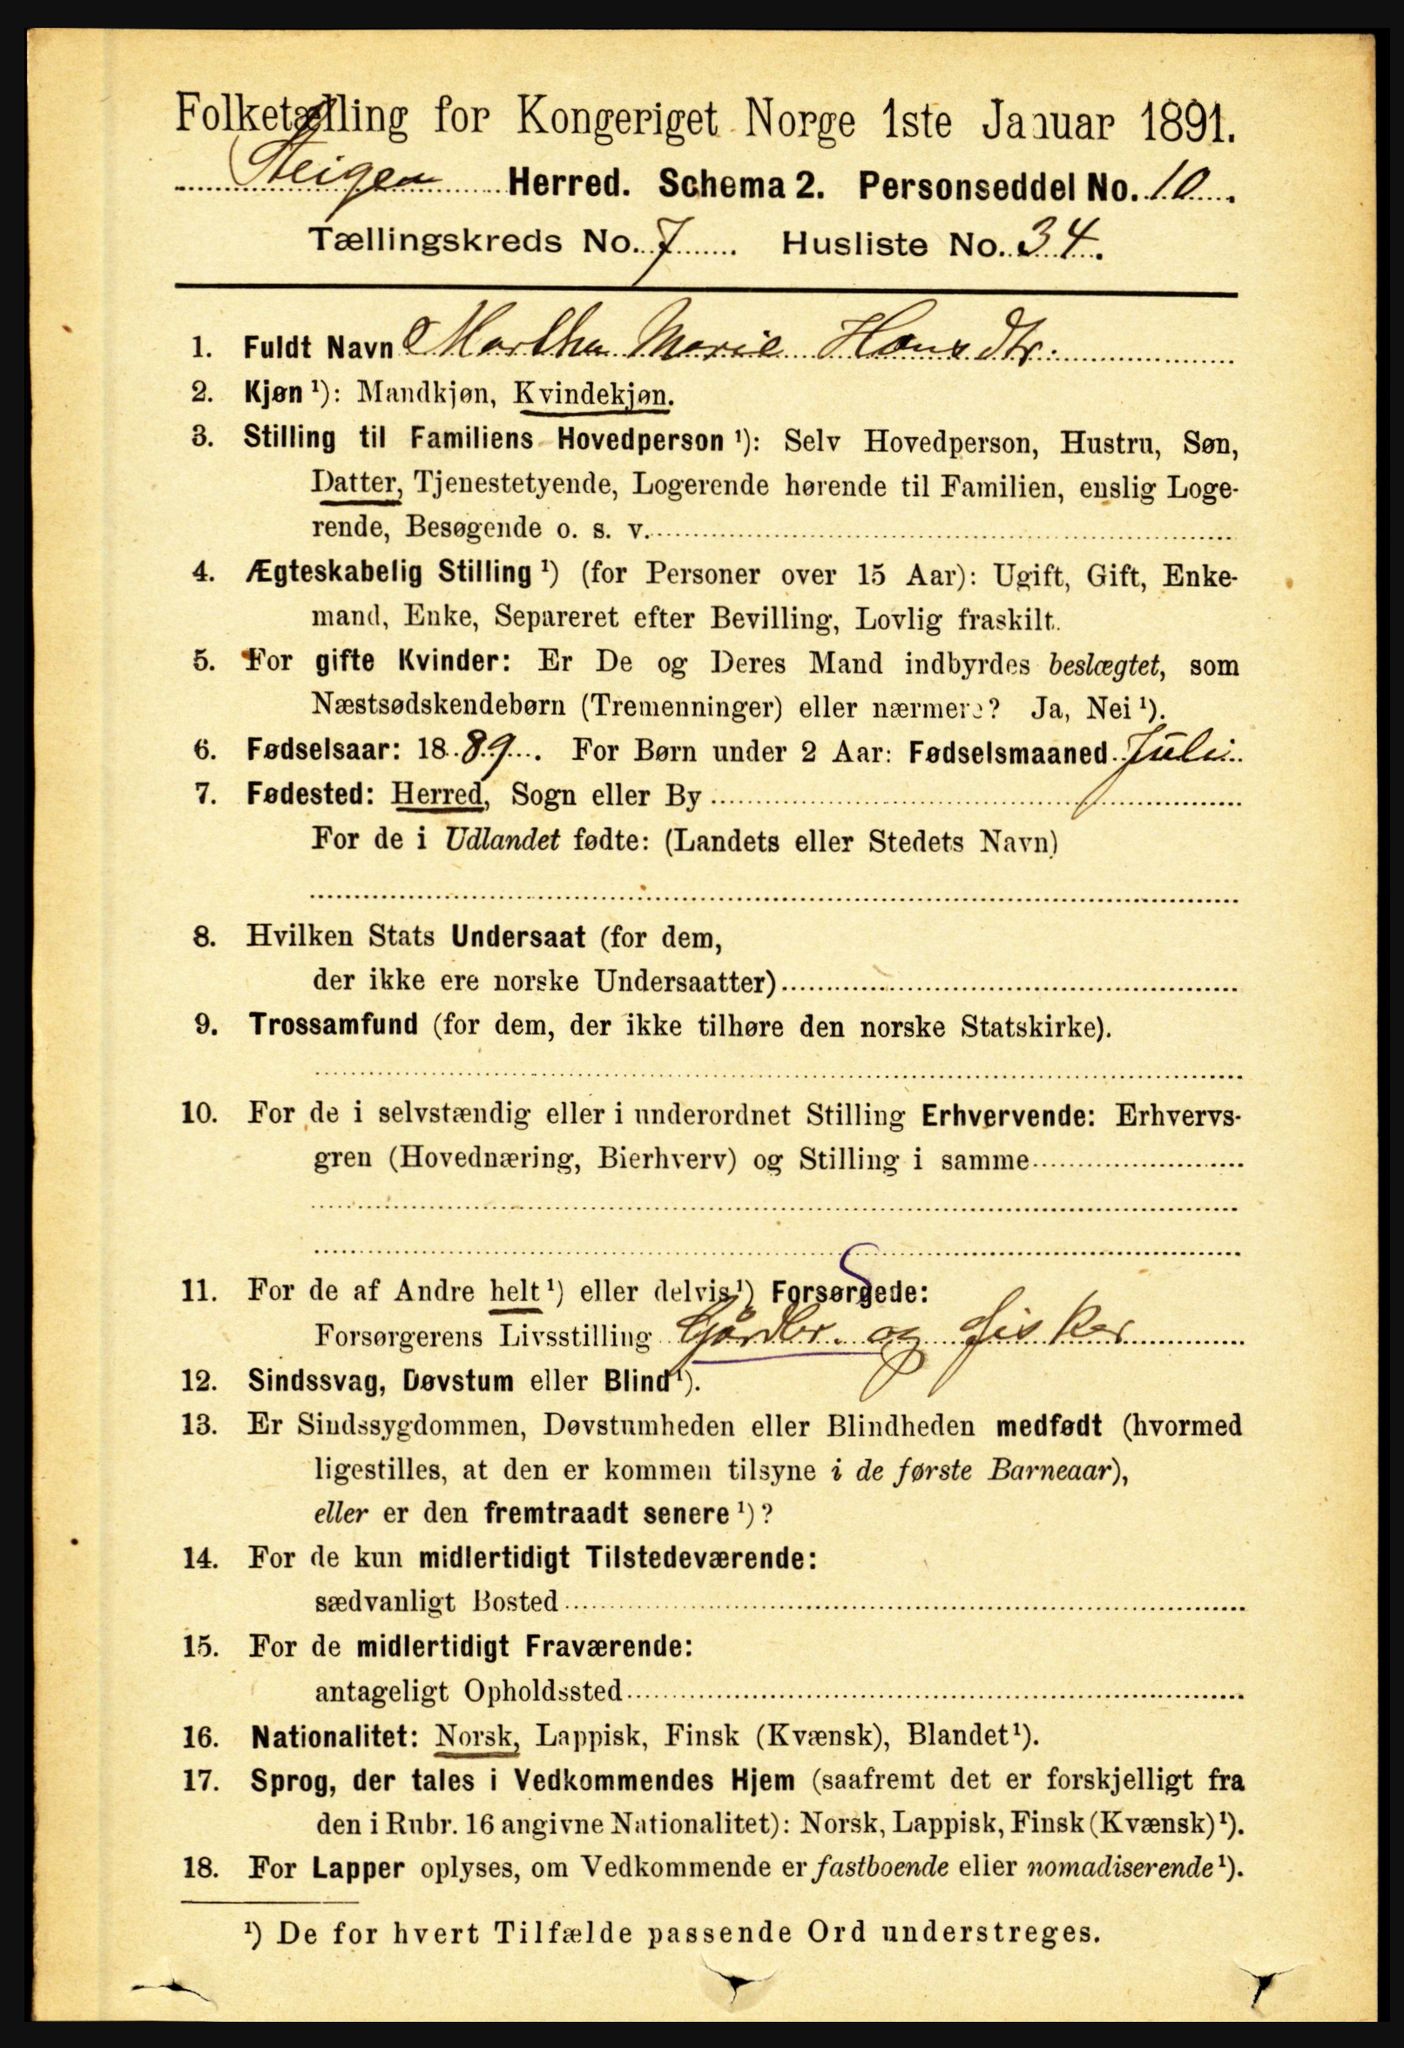 Folketælling for Kongeriget Norge 1ste Januar 1891.
Steigen Herred. Schema 2. Personseddel No. 10.
Tællingskreds No. 7 Husliste No. 34.
1. Fuldt Navn Martha Marie Hansdtr.
2. Kjøn ¹): Mandkjøn, Kvindekjøn.
3. Stilling til Familiens Hovedperson ¹): Selv Hovedperson, Hustru, Søn,
Datter, Tjenestetyende, Logerende hørende til Familien, enslig Loge-
rende, Besøgende o. s. v.
4. Ægteskabelig Stilling ¹) (for Personer over 15 Aar): Ugift, Gift, Enke-
mand, Enke, Separeret efter Bevilling, Lovlig fraskilt.
5. For gifte Kvinder: Er De og Deres Mand indbyrdes beslægtet, som
Næstsødskendebørn (Tremenninger) eller nærmere? Ja, Nei ¹).
6. Fødselsaar: 1889. For Børn under 2 Aar: Fødselsmaaned Juli
7. Fødested: Herred, Sogn eller By
For de i Udlandet fødte: (Landets eller Stedets Navn)
8. Hvilken Stats Undersaat (for dem,
der ikke ere norske Undersaatter)
9. Trossamfund (for dem, der ikke tilhøre den norske Statskirke).
10. For de i selvstændig eller i underordnet Stilling Erhvervende: Erhvervs-
gren (Hovednæring, Bierhverv) og Stilling i samme
11. For de af Andre helt ¹) eller delvis ¹) Forsørgede:
Forsørgerens Livsstilling Gårdbr. og fisker
12. Sindssvag, Døvstum eller Blind ¹).
13. Er Sindssygdommen, Døvstumheden eller Blindheden medfødt (hvormed
ligestilles, at den er kommen tilsyne i de første Barneaar),
eller er den fremtraadt senere ¹)?
14. For de kun midlertidigt Tilstedeværende:
sædvanligt Bosted
15. For de midlertidigt Fraværende:
antageligt Opholdssted
16. Nationalitet: Norsk, Lappisk, Finsk (Kvænsk), Blandet ¹).
17. Sprog, der tales i Vedkommendes Hjem (saafremt det er forskjelligt fra
den i Rubr. 16 angivne Nationalitet): Norsk, Lappisk, Finsk (Kvænsk) ¹).
18. For Lapper oplyses, om Vedkommende er fastboende eller nomadiserende ¹).
¹) De for hvert Tilfælde passende Ord understreges.